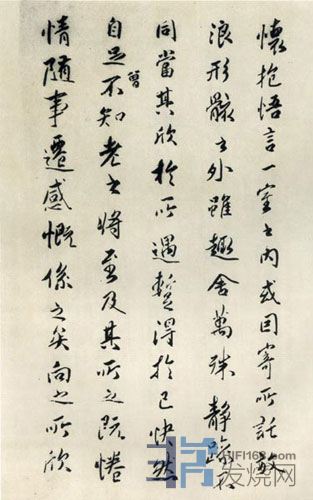 懷抱悟言一室之內或因寄所託放
浪形骸之外雖趣舍萬殊靜躁不
同當其欣於所遇暫得於己快然
自足不曾知老之將至及其所之既惓
情隨事遷感慨係之矣向之所欣
HIFI168.com
发烧网